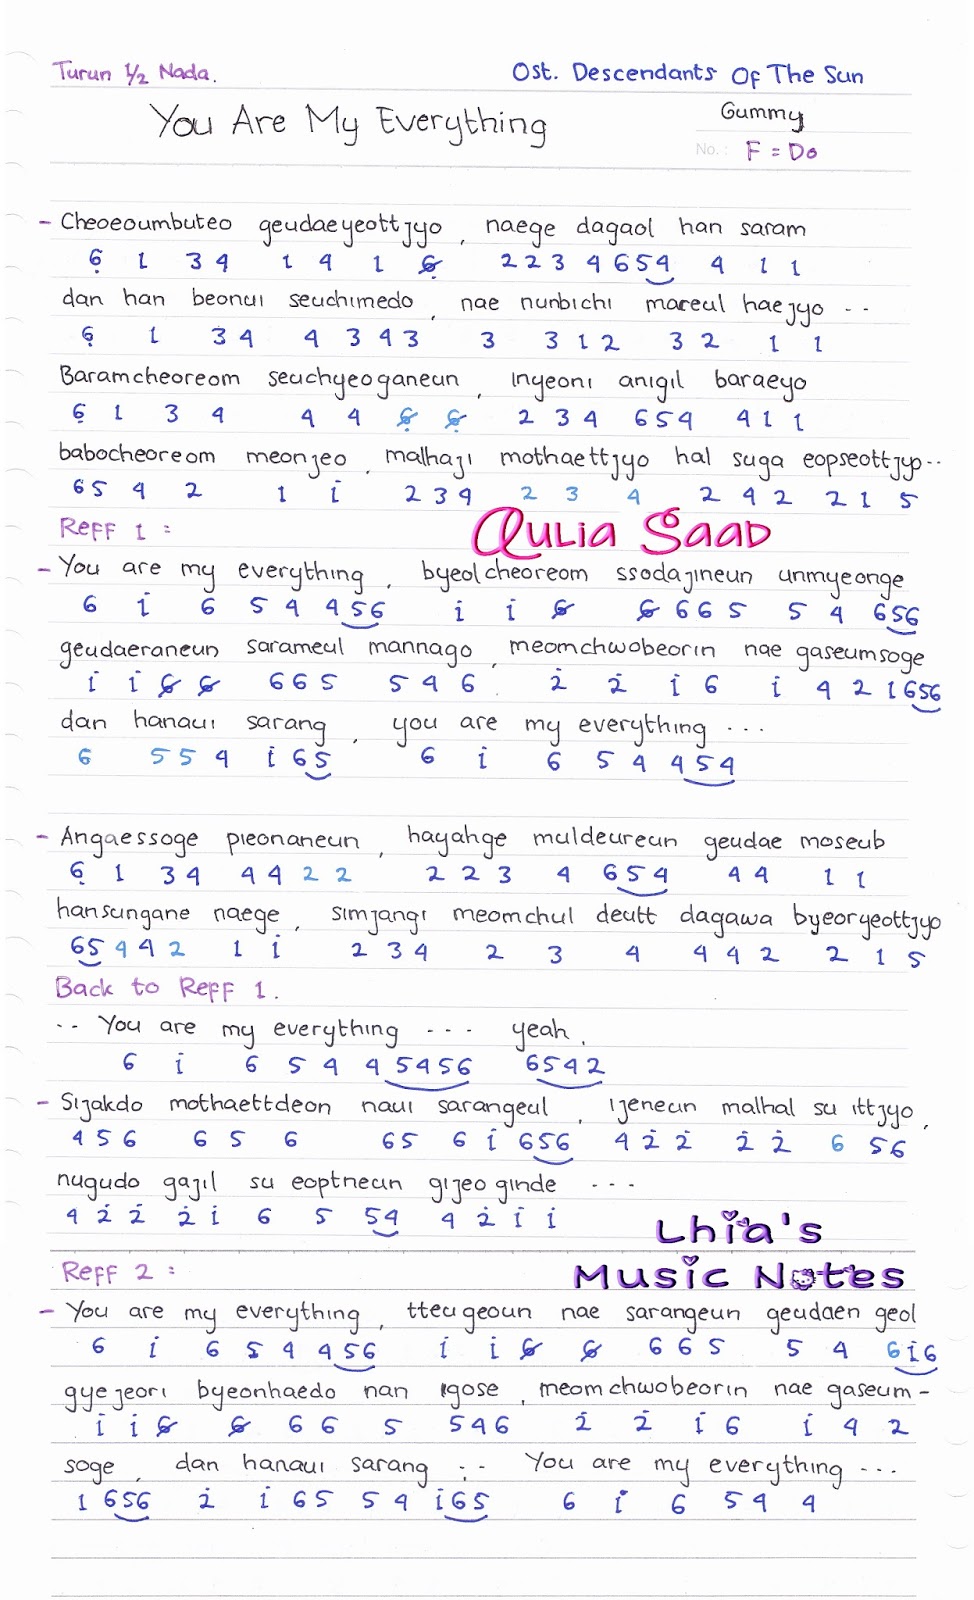 Turun ½ Nada. Ost. Descendants Of The Sun
You Are My Everything Gummy
No.: F = Do
- Cheoeoumbuteo geudaeyeottjyo, naege dagaol han saram
6̣ 1 3 4 1 4 1 6̣ 2 2 3 4 6 5 4 4 1 1
dan han beonui seuchimedo, nae nunbichi mareul haejyo --
6̣ 1 3 4 4 3 4 3 3 3 1 2 3 2 1 1
Baramcheoreom seuchyeoganeun, inyeoni anigil baraeyo
6̣ 1 3 4 4 4 6̣ 6̣ 2 3 4 6 5 4 4 1 1
babocheoreom meonjeo, malhaji mothaettjyo hal suga eopseottjyo--
6 5 4 2 1 i 2 3 4 2 3 4 2 4 2 2 1 5
Reff 1 : Qulia Saad
- You are my everything, byeolcheoreom ssodajineun unmyeonge
6 i 6 5 4 4 5 6 i i 6 6 6 6 5 5 4 6 5 6
geudaeraneun sarameul mannago, meomchwobeorin nae gaseumsoge
i i 6 6 6 6 5 5 4 6 2̇ 2̇ i 6 i 4 2 1 6 5 6
dan hanaui sarang, you are my everything ...
6 5 5 4 i 6 5 6 i 6 5 4 4 5 4
- Angaessoge pieonaneun, hayahge muldeureun geudae moseub
6̣ 1 3 4 4 4 2 2 2 2 3 4 6 5 4 4 4 1 1
hansungane naege, simjangi meomchul deutt dagawa byeoryeottjyo
6 5 4 4 2 1 i 2 3 4 2 3 4 4 4 2 2 1 5
Back to Reff 1.
-- You are my everything --- yeah.
6 i 6 5 4 4 5 4 5 6 6 5 4 2
- Sijakdo mothaettdeon naui sarangeul, ijeneun malhal su ittjyo,
4 5 6 6 5 6 6 5 6 i 6 5 6 4 2̇ 2̇ 2̇ 2̇ 6 5 6
nugudo gajil su eoptneun gijeo ginde ---
4 2̇ 2̇ 2̇ i 6 5 5 4 4 2̇ i i
Lhia's
Reff 2 : Music Notes
- You are my everything, tteugeoun nae sarangeun geudaen geol
6 i 6 5 4 4 5 6 i i 6 6 6 6 5 5 4 6 i 6
gyejeori byeonhaedo nan igose, meomchwobeorin nae gaseum-
i i 6 6 6 6 5 5 4 6 2̇ 2̇ i 6 i 4 2
soge, dan hanaui sarang -- You are my everything ---
1 6 5 6 2̇ i 6 5 5 4 i 6 5 6 i 6 5 4 4